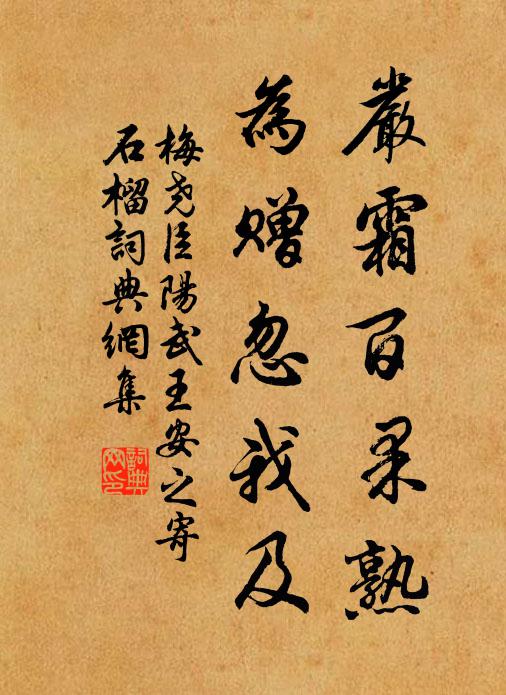 嚴霜百果熟
為贈忽我及
梅堯臣陽武王安之寄
石榴詞典網集
詞典
網印